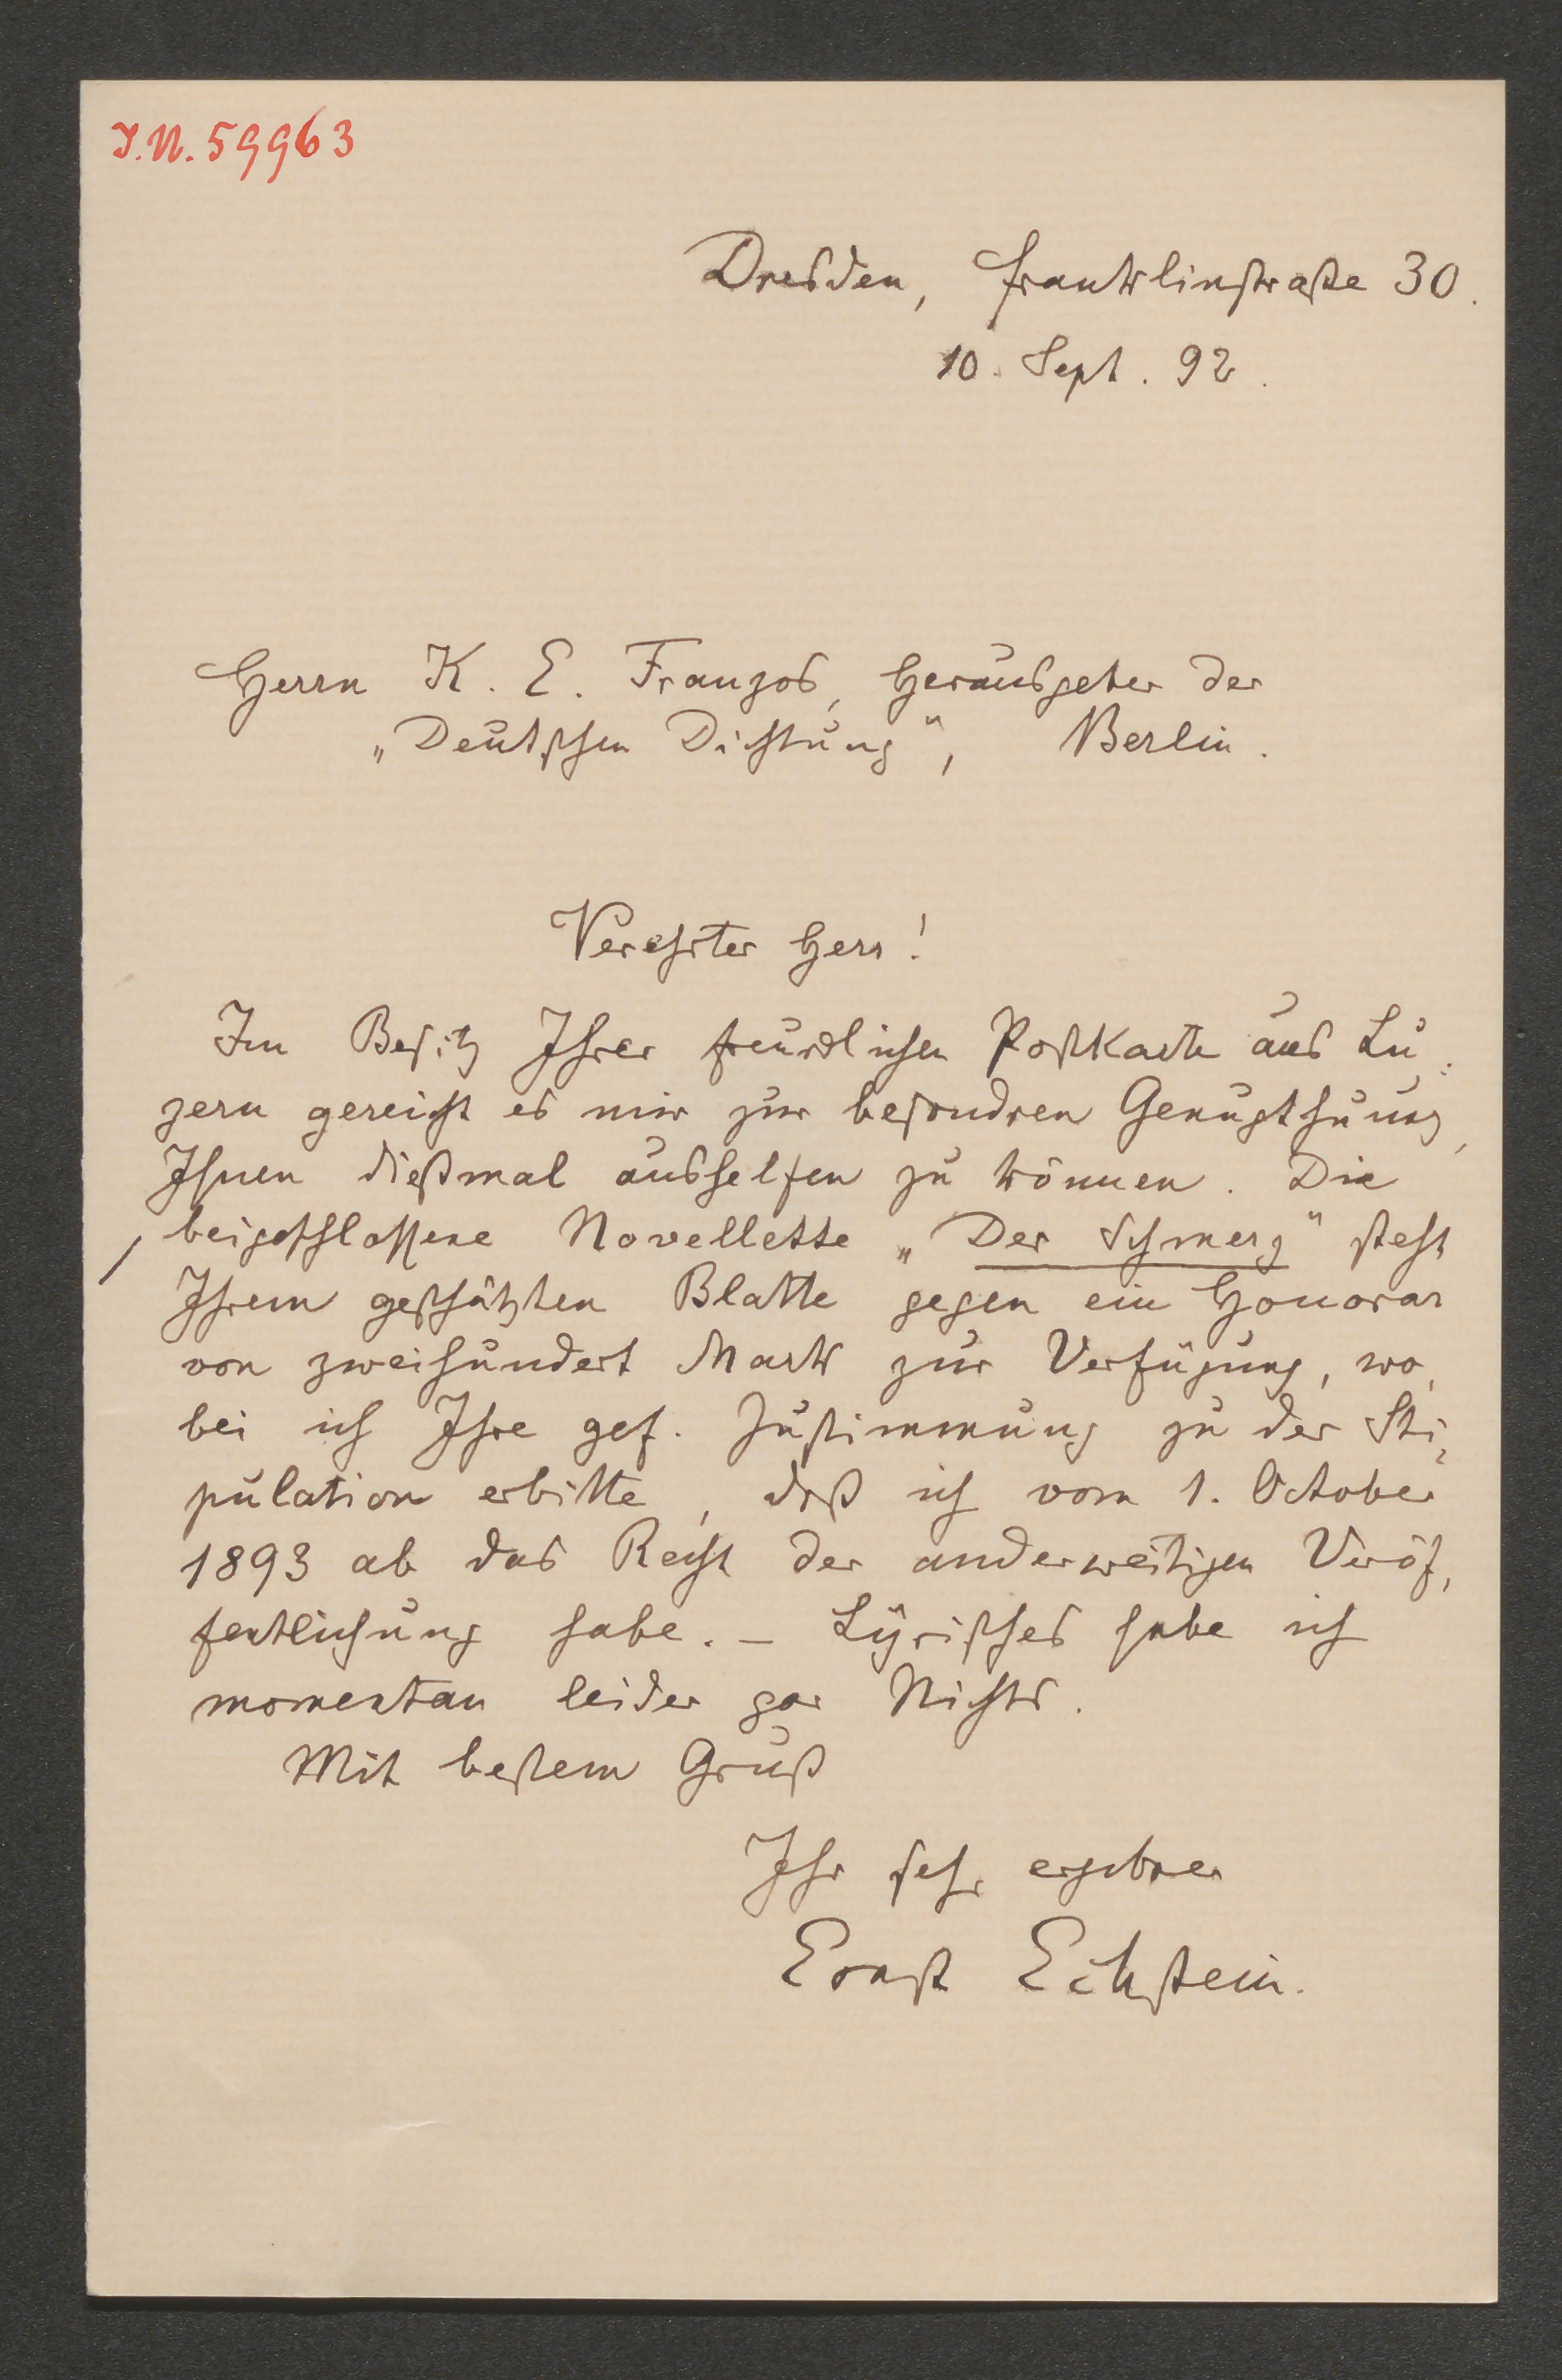 I.N. 59963
Dresden, Franklinstraße 30.
10. Sept. 92.
Herrn K. E. Franzos, Herausgeber der
„Deutschen Dichtung“, Berlin.
Verehrter Herr!
Im Besitz Ihrer freundlichen Postkarte aus Lu-
zern gereicht es mir zur besondren Genugthuung,
Ihnen dießmal aushelfen zu können. Die
beigeschlossene Novellette „Der Schmerz“ steht
Ihrem geschätzten Blatte gegen ein Honorar
von zweihundert Mark zur Verfügung, wo-
bei ich Ihre gef. Zustimmung zu der Sti-
pulation erbitte, daß ich vom 1. October
1893 ab das Recht der anderweitigen Veröf-
fentlichung habe. – Lyrisches habe ich
momentan leider gar Nichts.
Mit bestem Gruß
Ihr sehr ergebner
Ernst Eckstein.